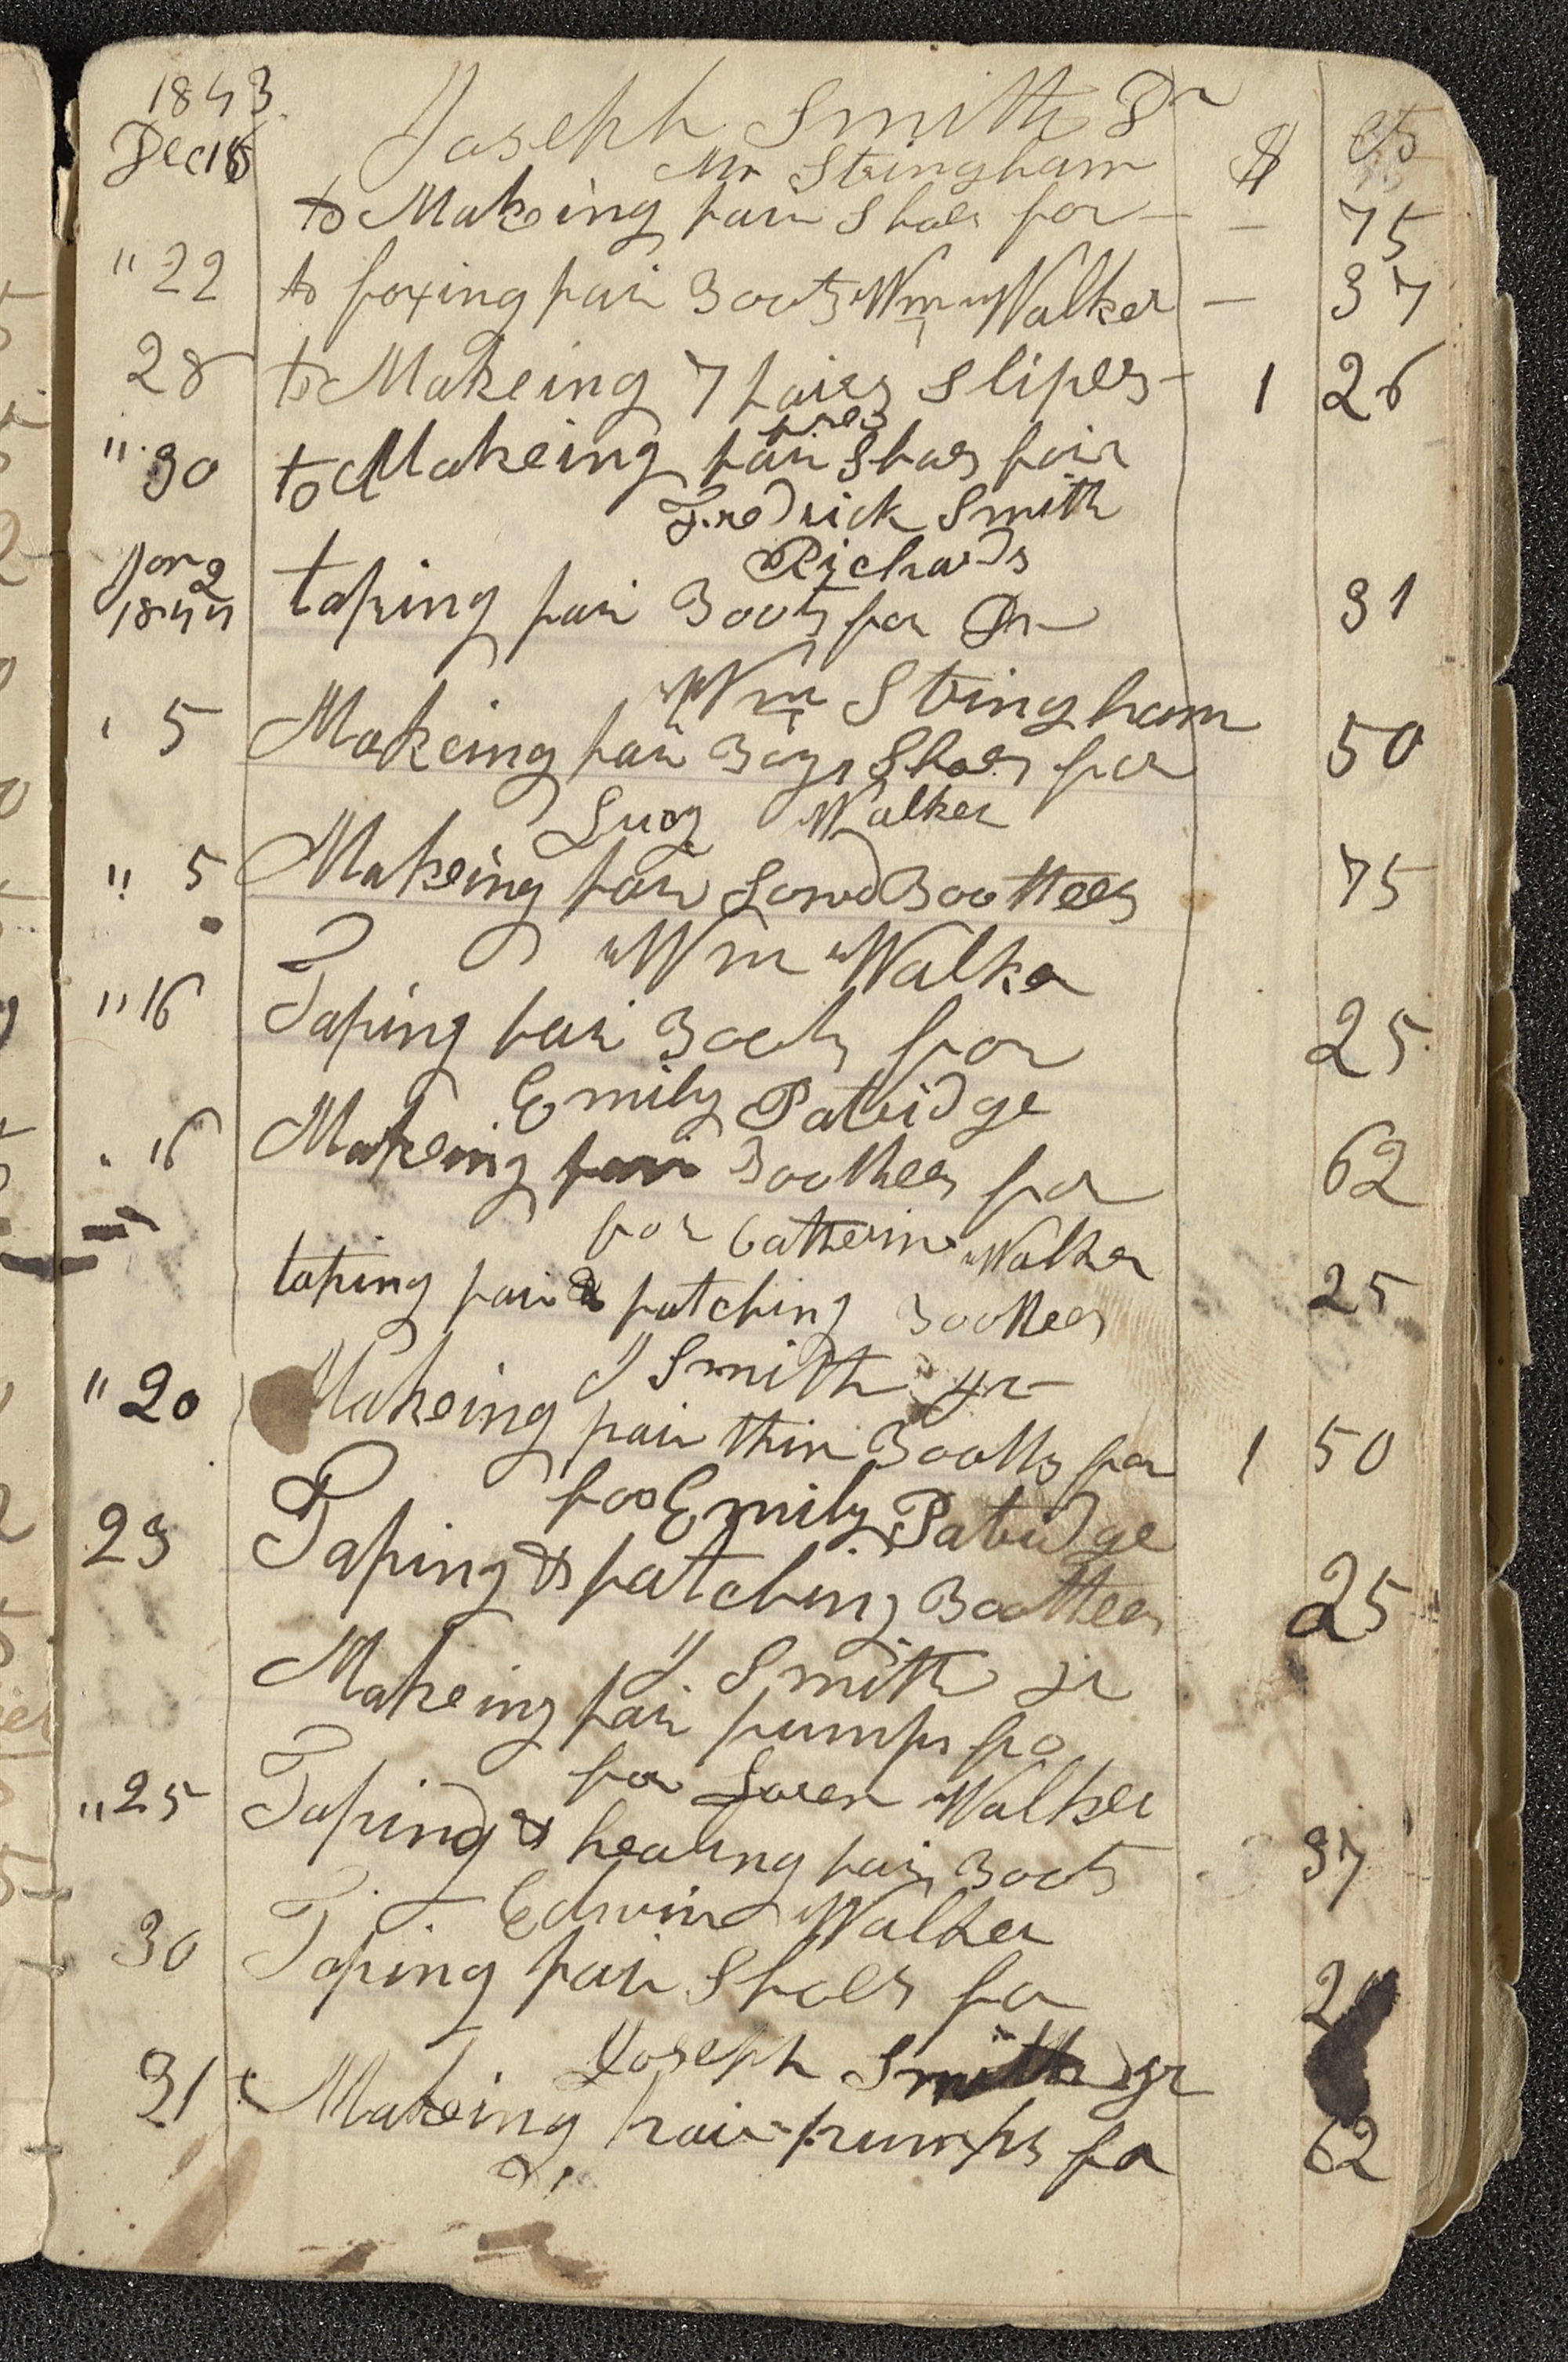 1843
Joseph Smith Dr
$ cts
Dec 16
Mr Stringham
to Makeing pair Shoes for — — 75
" 22 to foxing pair Boots Wm Walker — 37
28 to Makeing 7 paires Slipes - 1 26
pres
" 30 to Makeing pair Shoes foir
Fredrick Smith
Jan 2
1844
Richards
taping pair Boots for Dr — 31
Wm Stringham
' 5 Makeing pair Boys Shoes for 50
Lucy Walker
" 5 Makeing pair Bootees 75
Wm Walker
" 16 Taping pair Boots for 25
Emily Patridge
" 16 Makeing pair Bootees for 62
for Catherine Walker
taping pair & patching Bootees 25
J Smith jr
" 20 Makeing pair thin Bootts for 1 50
for Emily Patridge
23 Taping & patching Bootees 25
J Smith jr
Makeing pair pumps fo
for Loren Walker
" 25 Taping & healing pair Boots 37
Edwin Walker
30 Taping pair Shoes for 2
Joseph Smith jr
31 Makeing pair pumps for 62